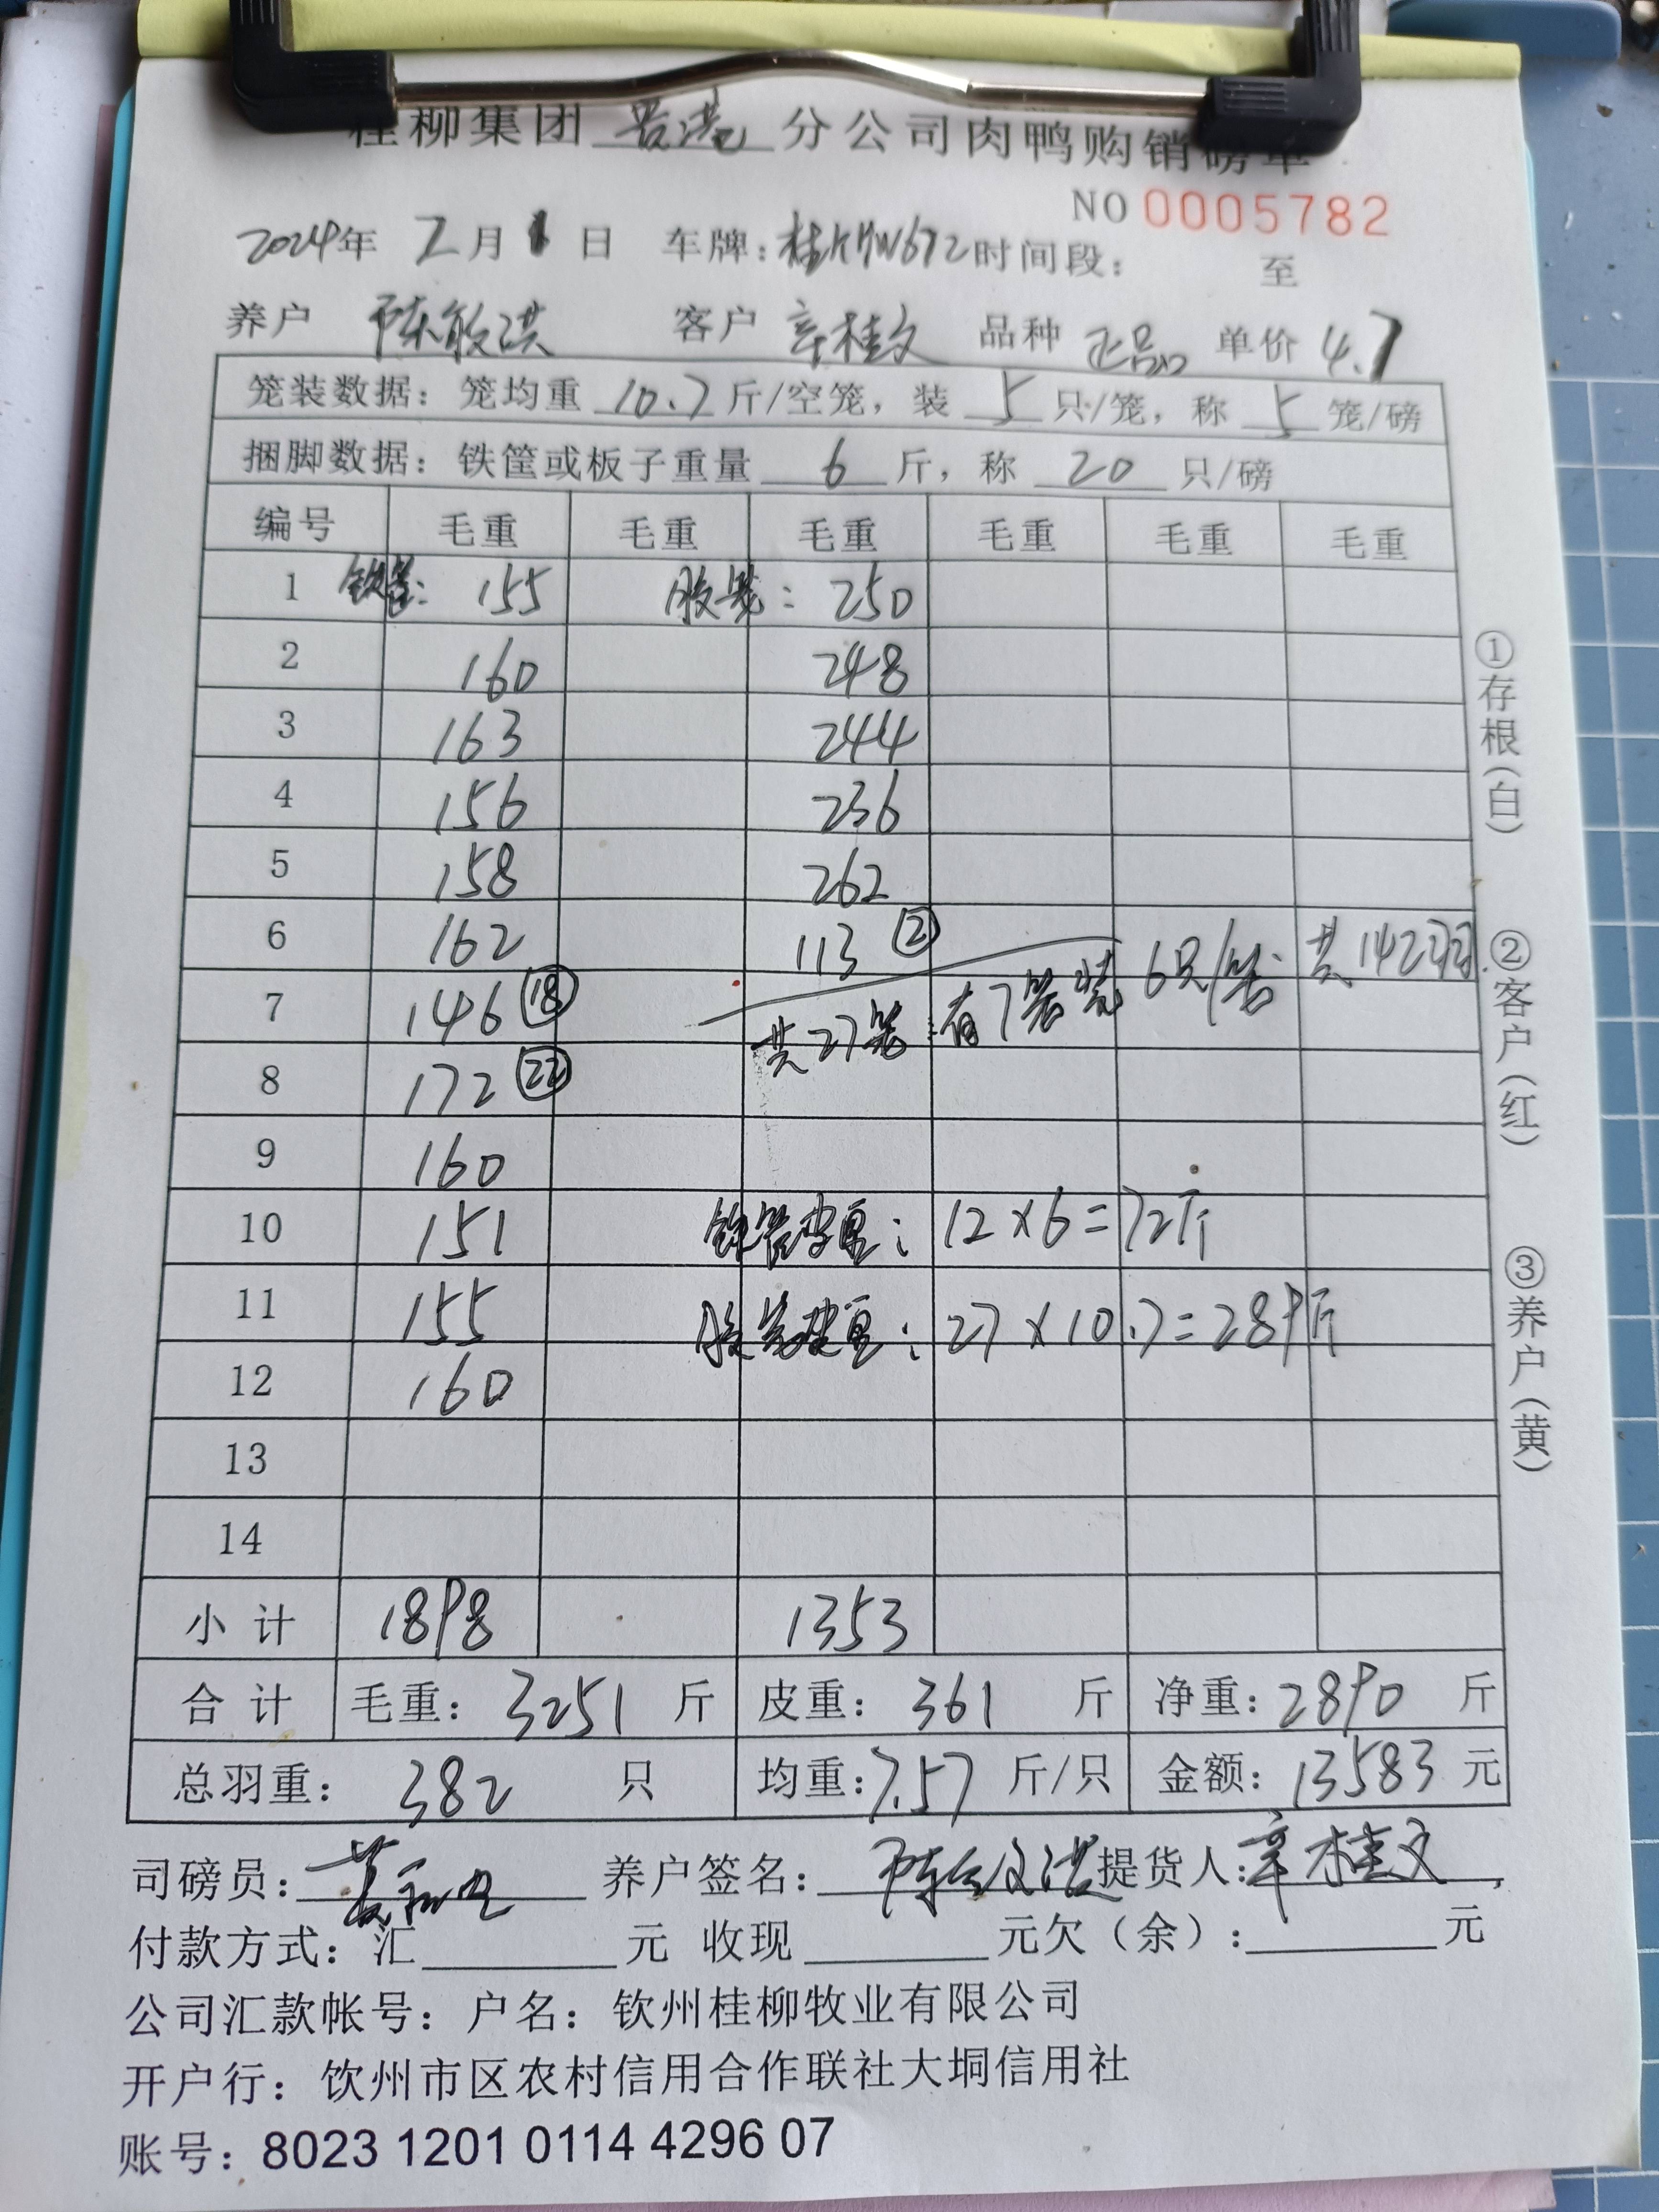 桂柳集团 贵港 分公司肉鸭购销磅单
NO 0005782
2024年 2月 日 车牌: 时间段: 至
养户 陈敏洪 客户 辛桂文 品种 正品 单价 4.7
笼装数据: 笼均重 10.7 斤/空笼, 装 5 只/笼, 称 5 笼/磅
捆脚数据: 铁筐或板子重量 6 斤, 称 20 只/磅
编号 毛重 毛重 毛重 毛重 毛重 毛重
1 铁筐: 155 胶笼: 250
2 160 248
3 163 244
4 156 236
5 158 262
6 162 113 ②
7 146 ⑱ 共27笼 有7笼装 6只/笼 共142羽
8 172 ㉒
9 160
10 151 铁筐皮重: 12×6=72斤
11 155 胶笼皮重: 27×10.7=289斤
12 160
13
14
小计 1898 1353
合计 毛重: 3251 斤 皮重: 361 斤 净重: 2890 斤
总羽重: 382 只 均重: 7.57 斤/只 金额: 13583 元
司磅员: 养户签名: 陈敏洪 提货人: 辛桂文
付款方式: 汇 元 收现 元欠(余): 元
公司汇款帐号: 户名: 钦州桂柳牧业有限公司
开户行: 钦州市区农村信用合作联社大垌信用社
账号: 8023 1201 0114 4296 07
①存根(白)
②客户(红)
③养户(黄)